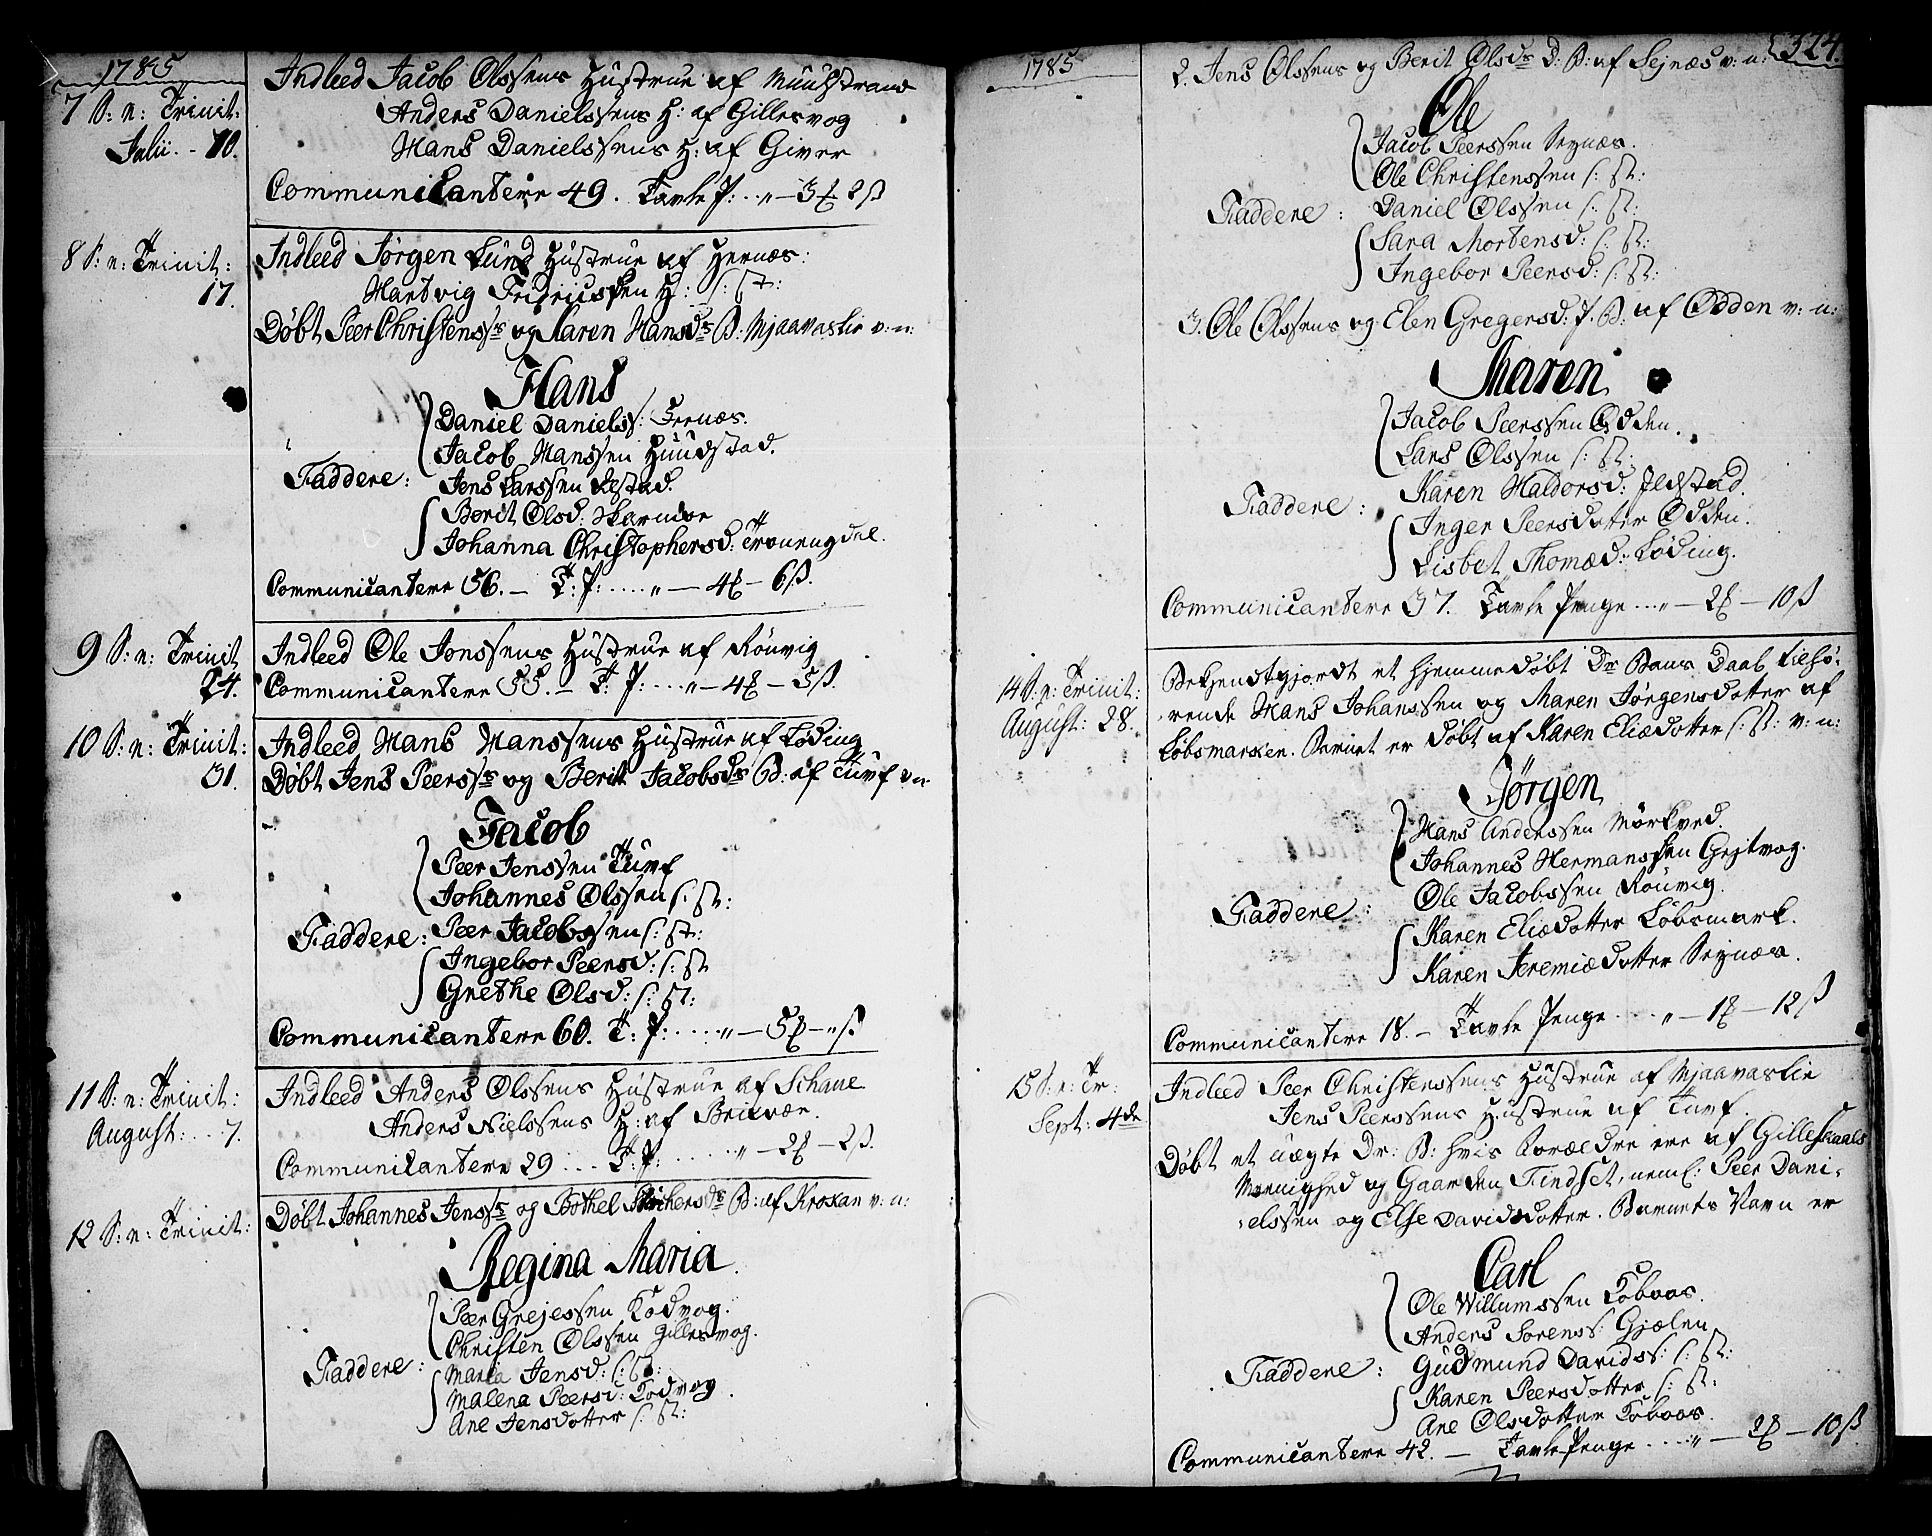 1785
7 S: n: Trinit:
Julii. - 10.
Indleed Jacob Olssens Hustrue af Muulstrand
Anders Danielssens H: af Gillesvog
Hans Danielssens H: af Giver
Communicantere 49. Tavle P: .. " — 3 — 2 ß
8 S: n: Trinit:
17.
Indleed Jørgen Lund Hustrue af Hernæs:
Hartvig Fridricssen H: s: st:
Døbt Peer Christenss: og Karen Hansd: B: Mjaavaslie v: n:
Hans
Daniel Danielss: Fernæs.
Jacob Hanssen Hundstad.
Faddere: Jens Larssen Restad.
Berit Olsd: Skarmoe
Johanna Christophersd: Tvonengdal.
Communicantere 56. — T: P: .... " — 4 — 6 ß.
9 S: n: Trinit
24.
Indleed Ole Jonssens Hustrue af Rönvig
Communicantere 55. — T: P: .... " — 4 — 5 ß.
10 S: n: Trinit:
31.
Indleed Hans Hanssens Hustrue af Løding
Døbt Jens Peerss: og Berit Jacobsd: B: af Tuvf v: n:
Jacob
Peer Jenssen Tuvf
Johannes Olssen s: st:
Faddere: Peer Jacobssen s: st:
Ingebor Peersd: s: st
Grethe Olsd: s: st:
Communicantere 60. T: P: .... " — 5 — " ß
11 S: n: Trinit:
August: .. 7.
Indleed Anders Olssens Hustrue af Schaue
Anders Nielssens H: af Brixvær.
Communicantere 29 .... T: P: .... " — 2 — 2 ß.
12 S: n: Trinit:
Døbt Johannes Jenss: og Bothel B: af Kroxan v: n:
Regina Maria
Peer Grejessen Todvog.
Christen Olssen Gillesvog.
Faddere: Maria Jensd: s: st:
Malena Peersd: Todvog.
Ane Jensdotter s: st:
1785
324.
2. Jens Olssens og Berit Olsd: D: B: af Sejnæs v: n:
Ole
Jacob Peerssen Seynæs.
Ole Christenssen s: st:
Faddere: Daniel Olssen s: st:
Sara Mortensd: s: st:
Ingebor Peersd: s: st:
3. Ole Olssens og Elen Gregersd: P. B: af Odden v: n:
Maren
Jacob Peerssen Odden.
Lars Olssen s: st:
Faddere: Karen Haldorsd: Ildstad.
Inger Peersdotter Odden.
Lisbet Thomæd: Løding.
Communicantere 37. Tavle Penge ... " — 2 — 10 ß
14 S: n: Trinit:
August: 28.
Bekjendtgjordt et hjemmedøbt Dr. Bans Daab tilhø-
rende Hans Johanssen og Maren Jørgensdotter af
Løbsmarken. Barnet er døbt af Karen Eliædotter s: st: v: n:
Jørgen
Hans Anderssen Mörkved
Johannes Hermanssen Grejtvog.
Faddere: Ole Jacobssen Rönvig.
Karen Eliædotter Løbsmark.
Karen Jeremiædotter Seynæs.
Communicantere 18. — Tavle Penge .... " — 1 — 12 ß
15 S: n: Tr:
Sept: 4de
Indleed Peer Christenssens Hustrue af Mjaavaslie
Jens Peerssens Hustrue af Tuvf.
Døbt et uægte Dr: B: hvis Forældre ere af Gilleskaals
Menighed og Gaarden Findset, neml: Peer Dani-
elssen og Else Davidsdotter. Barnets Navn er
Carl
Ole Willumssen Tobvos.
Anders Sorenss: Gjælen
Faddere: Gudmund Davidss: s: st:
Karen Peersdotter s: st:
Ane Olsdotter Tobvos.
Communicantere 42. — Tavle Penge .... " — 2 — 10 ß.